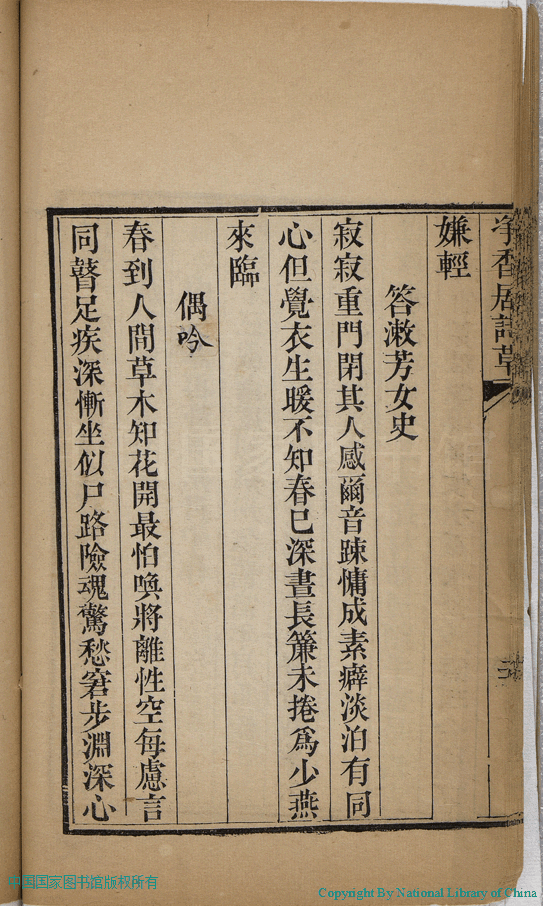 淨香居詩草
嫌輕
答漱芳女史
寂寂重門閉其人感爾音踈慵成素癖淡泊有同
心但覺衣生暖不知春已深晝長簾未捲爲少燕
來臨
偶吟
春到人間草木知花開最怕喚將離性空每慮言
同瞽足疾深慚坐似尸路險魂驚愁窘步淵深心
中国国家图书馆版权所有
Copyright By National Library of China